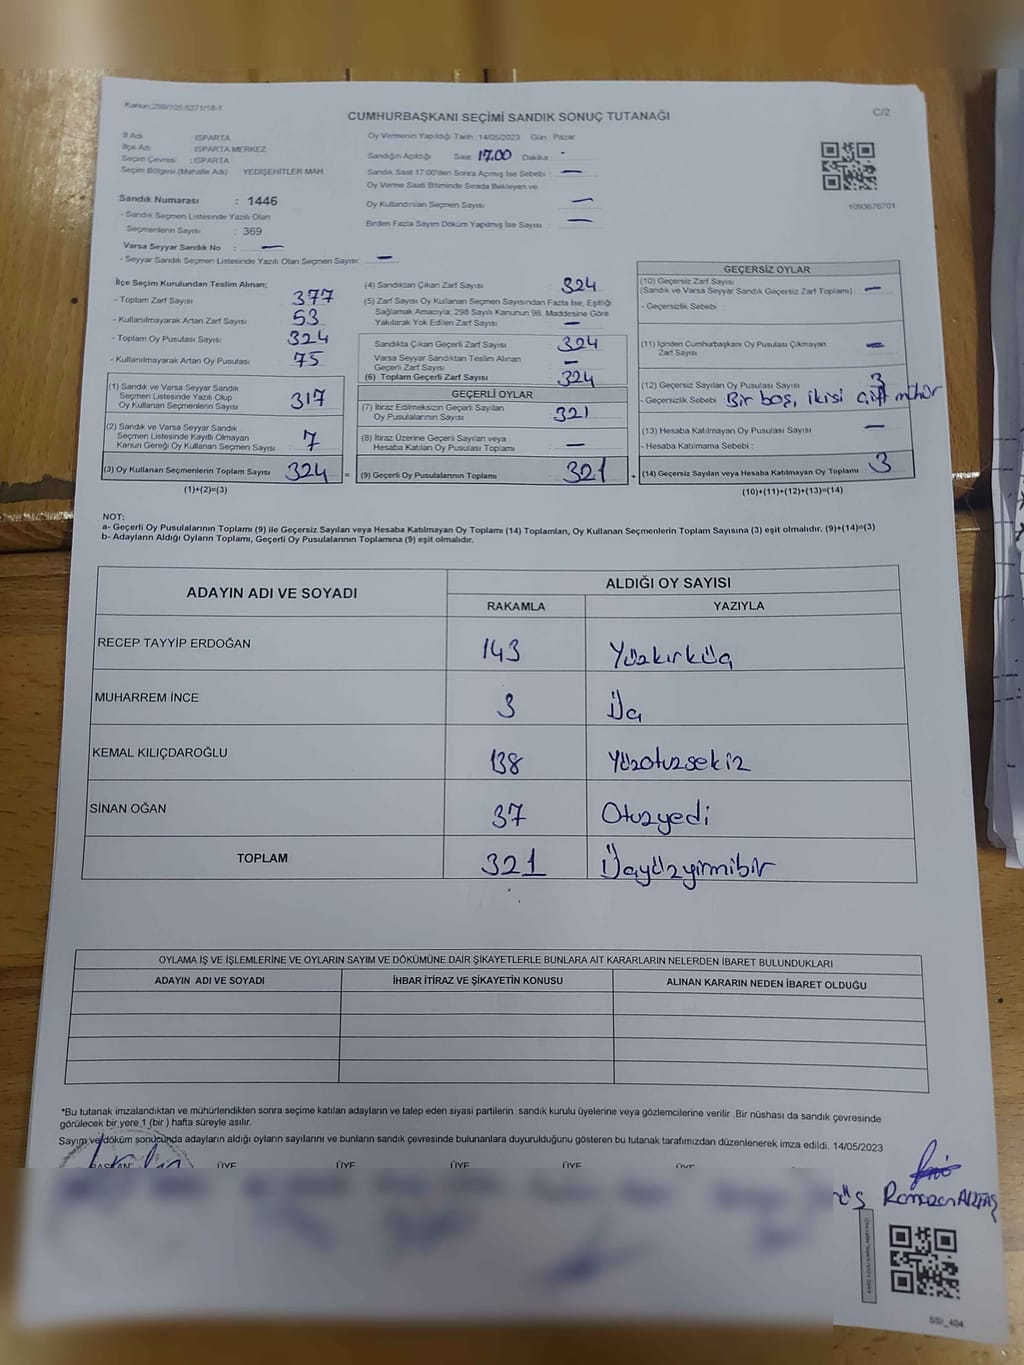 Kanun:298/105-6271/18-1
CUMHURBAŞKANI SEÇİMİ SANDIK SONUÇ TUTANAĞI
C/2
İl Adı : ISPARTA
İlçe Adı : ISPARTA MERKEZ
Seçim Çevresi : ISPARTA
Seçim Bölgesi (Mahalle Adı) YEDİŞEHİTLER MAH.
Sandık Numarası : 1446
- Sandık Seçmen Listesinde Yazılı Olan
Seçmenlerin Sayısı : 369
Varsa Seyyar Sandık No : —
- Seyyar Sandık Seçmen Listesinde Yazılı Olan Seçmen Sayısı: —
Oy Vermenin Yapıldığı Tarih : 14/05/2023 Gün : Pazar
Sandığın Açıldığı Saat 17.00 Dakika : -
Sandık Saat 17:00'den Sonra Açımış İse Sebebi : —
Oy Verme Saati Bitiminde Sırada Bekleyen ve
Oy Kullandırılan Seçmen Sayısı : —
Birden Fazla Sayım Döküm Yapılmış İse Sayısı : —
1093676701
İlçe Seçim Kurulundan Teslim Alınan;
- Toplam Zarf Sayısı : 377
- Kullanılmayarak Artan Zarf Sayısı : 53
- Toplam Oy Pusulası Sayısı : 324
- Kullanılmayarak Artan Oy Pusulası : 75
(1) Sandık ve Varsa Seyyar Sandık
Seçmen Listesinde Yazılı Olup
Oy Kullanan Seçmenlerin Sayısı : 317
(2) Sandık ve Varsa Seyyar Sandık
Seçmen Listesinde Kayıtlı Olmayan
Kanun Gereği Oy Kullanan Seçmen Sayısı : 7
(3) Oy Kullanan Seçmenlerin Toplam Sayısı 324 =
(1)+(2)=(3)
(4) Sandıktan Çıkan Zarf Sayısı : 324
(5) Zarf Sayısı Oy Kullanan Seçmen Sayısından Fazla İse, Eşitliği
Sağlamak Amacıyla; 298 Sayılı Kanunun 98. Maddesine Göre
Yakılarak Yok Edilen Zarf Sayısı : —
Sandıkta Çıkan Geçerli Zarf Sayısı : 324
Varsa Seyyar Sandıktan Teslim Alınan
Geçerli Zarf Sayısı : —
(6) Toplam Geçerli Zarf Sayısı : 324
GEÇERLİ OYLAR
(7) İtiraz Edilmeksizin Geçerli Sayılan
Oy Pusulalarının Sayısı : 321
(8) İtiraz Üzerine Geçerli Sayılan veya
Hesaba Katılan Oy Pusulası Toplamı : —
(9) Geçerli Oy Pusulalarının Toplamı : 321 +
GEÇERSİZ OYLAR
(10) Geçersiz Zarf Sayısı
(Sandık ve Varsa Seyyar Sandık Geçersiz Zarf Toplamı) : —
- Geçersizlik Sebebi :
(11) İçinden Cumhurbaşkanı Oy Pusulası Çıkmayan
Zarf Sayısı : —
(12) Geçersiz Sayılan Oy Pusulası Sayısı : 3
- Geçersizlik Sebebi : Bir boş, ikisi çift mühür
(13) Hesaba Katılmayan Oy Pusulası Sayısı : —
- Hesaba Katılmama Sebebi :
(14) Geçersiz Sayılan veya Hesaba Katılmayan Oy Toplamı : 3
(10)+(11)+(12)+(13)=(14)
NOT:
a- Geçerli Oy Pusulalarının Toplamı (9) ile Geçersiz Sayılan veya Hesaba Katılmayan Oy Toplamı (14) Toplamları, Oy Kullanan Seçmenlerin Toplam Sayısına (3) eşit olmalıdır. (9)+(14)=(3)
b- Adayların Aldığı Oyların Toplamı, Geçerli Oy Pusulalarının Toplamına (9) eşit olmalıdır.
ADAYIN ADI VE SOYADI
ALDIĞI OY SAYISI
RAKAMLA YAZIYLA
RECEP TAYYİP ERDOĞAN 143 Yüzkırküç
MUHARREM İNCE 3 Üç
KEMAL KILIÇDAROĞLU 138 Yüzotuzsekiz
SİNAN OĞAN 37 Otuzyedi
TOPLAM 321 Üçyüzyirmibir
OYLAMA İŞ VE İŞLEMLERİNE VE OYLARIN SAYIM VE DÖKÜMÜNE DAİR ŞİKAYETLERLE BUNLARA AİT KARARLARIN NELERDEN İBARET BULUNDUKLARI
ADAYIN ADI VE SOYADI İHBAR İTİRAZ VE ŞİKAYETİN KONUSU ALINAN KARARIN NEDEN İBARET OLDUĞU
*Bu tutanak imzalandıktan ve mühürlendikten sonra seçime katılan adayların ve talep eden siyasi partilerin sandık kurulu üyelerine veya gözlemcilerine verilir .Bir nüshası da sandık çevresinde
görülecek bir yere 1 (bir ) hafta süreyle asılır.
Sayım ve döküm sonucunda adayların aldığı oyların sayılarını ve bunların sandık çevresinde bulunanlara duyurulduğunu gösteren bu tutanak tarafımızdan düzenlenerek imza edildi. 14/05/2023
BAŞKAN ÜYE ÜYE ÜYE ÜYE ÜYE
Ramazan
SSI_404